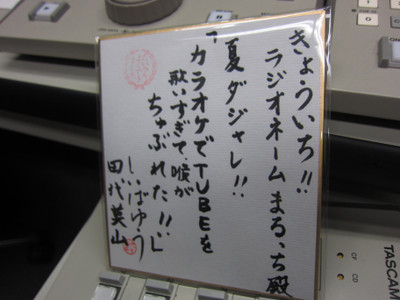 きょういち!!
ラジオネームまるっち殿
夏ダジャレ!!
「カラオケでTUBEを
歌いすぎて、喉が
ちゅぶれた!!」
しばゆう
田代英山
TASCAM
CF
CD